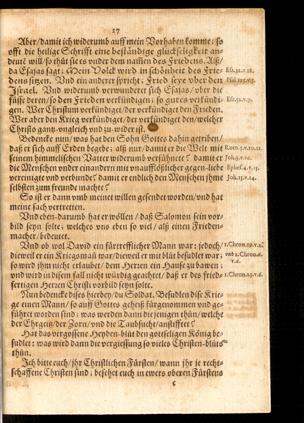 17
Aber/ damit ich widerumb auff mein Vorhaben komme; so
offt die heilige Schrifft eine beständige glückseligkeit an-
deuten will/ so thut sie es under dem nahmen des Friedens. Als/
da Esajas sagt: Mein Volck wird in schönheit des Frie-
dens sitzen. Und ein anderer spricht: Fried seye vber den
Israel. Und widerumb verwundert sich Esajas/ ober die
füsse deren/ so den Frieden verkündigen; so gutes verkündi-
gen. Wer Christum verkündiget/ der verkündiget den Frieden.
Wer aber den Krieg verkündiget/ der verkündiget den/ welcher
Christo gantz ungleich und zu wider ist.
Bedencke nun/ was hat den Sohn Gottes dahin getrieben/
daß er sich auff Erden begebe: als nur/ damit er die Welt mit
seinem himmelischen Vatter widerumb versühnete? damit er
die Menschen under einandern mit unaufflößlicher gegen-liebe
vereinigte und verbunde? damit er endlich den Menschen ihme
selbsten zum freunde machte?
So ist er dann umb meinet willen gesendet worden/ und hat
meine sach vertretten.
Und eben-darumb hat er wöllen/ daß Salomon sein vor-
bild seyn solte; welches uns eben so viel/ als einen Frieden-
macher/ bedeutet.
Und ob wol David ein fürtrefflicher Mann war: jedoch/
dieweil er ein Kriegsmann war/ dieweil er mit blut besudlet war;
so wird ihm nicht erlaubet/ dem Herren ein Hauß zu bawen;
und wird in disem fall nicht würdig geachtet/ daß er des fried-
fertigen Herren Christi vorbild seyn solte.
Nun bedencke dises hierbey/ du Soldat. Besudlen die Krie-
ge einen Mann/ so auß Gottes geheiß fürgenommen und ge-
führet worden sind: was werden dann die jenigen thun/ welche
der Ehrgeitz/ der Zorn/ und die Taubsucht/ anstifftet?
Hat das vergossene Heyden-blut den gottseligen König be-
sudlet: was wird dann die vergiessung so vieles Christen-bluts
thun.
Ich bitte euch/ ihr Christlichen Fürsten/ wann ihr je recht-
schaffene Christen sind; besehet euch in ewers oberen Fürstens
c
Esa.32.v.18.
Esa.52.v.7.
Rom.5.v.10.11.
Joh.15.v.14.
1.Chron.22.v.8.